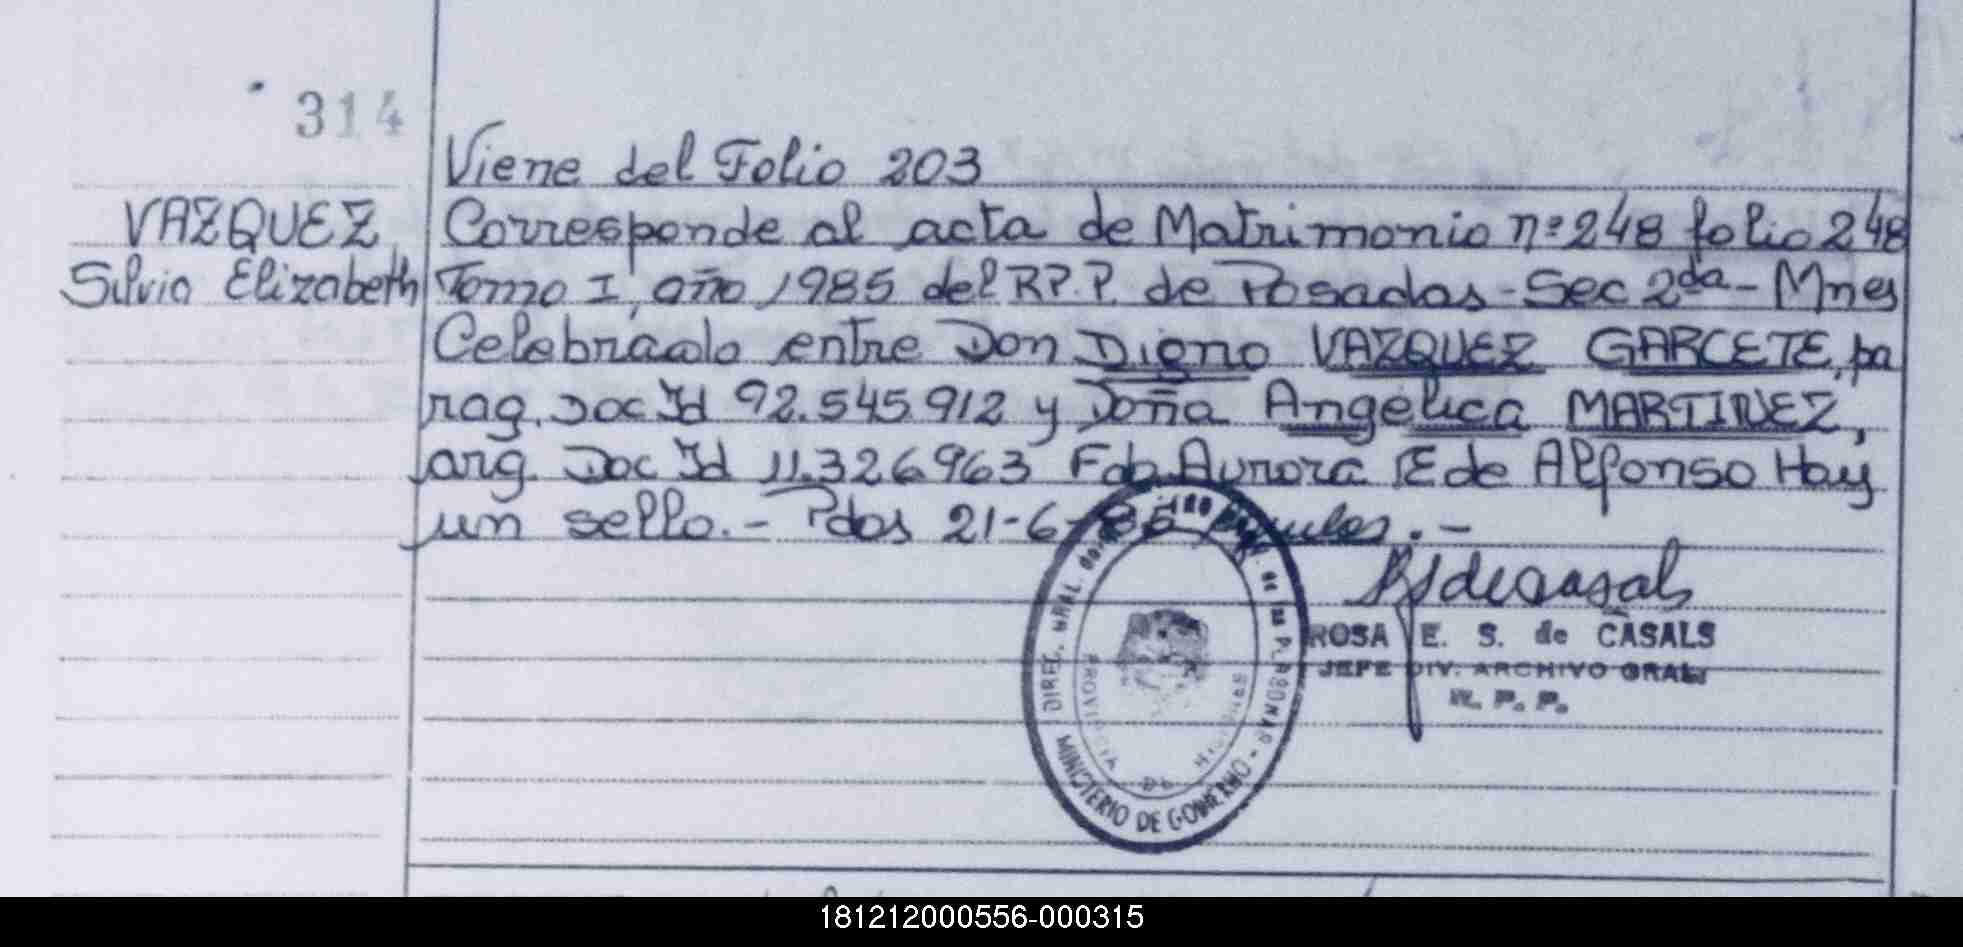 314
Viene del Folio 203
VAZQUEZ,
Silvia Elizabeth
Corresponde al acta de Matrimonio nº 248 folio 248
Tomo I, año 1985 del R.P.P. de Posadas - Sec 2da - Mnes
Celebrado entre Don Digno VAZQUEZ GARCETE, pa
rag. Doc Id 92.545.912 y Doña Angélica MARTINEZ,
arg. Doc Id 11.326963 Fdo Aurora E de Alfonso Hay
un sello. - Pdas 21-6-
ROSA E. S. de CASALS
JEFE DIV. ARCHIVO GRAL.
R. P. P.
DIREC. GRAL. de las PERSONAS
MINISTERIO DE GOBIERNO
PROVINCIA DE MISIONES
181212000556-000315